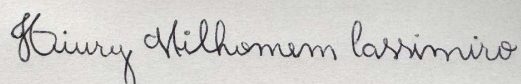 Hiury Milhomem Cassimiro